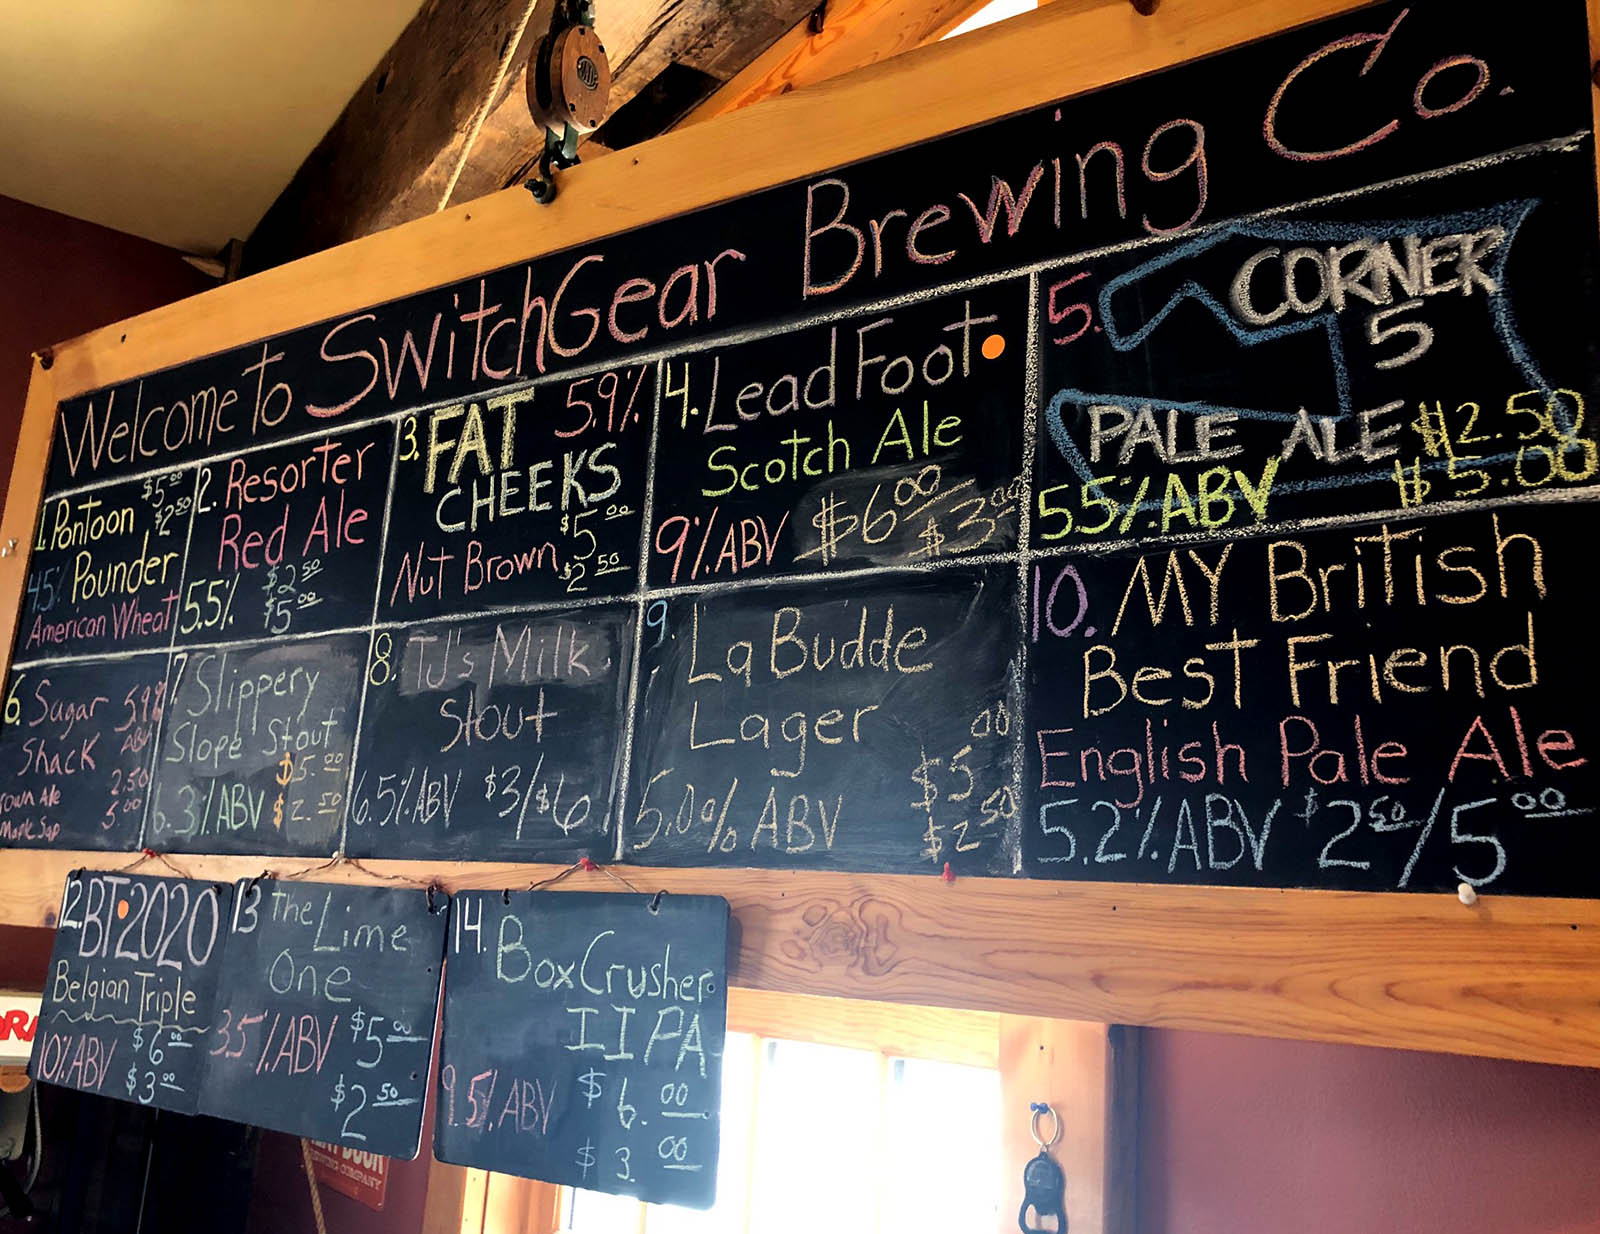 Welcome to SwitchGear Brewing Co.
1. Pontoon $5.00
$2.50
4.5% Pounder
American Wheat
2. Resorter
Red Ale
5.5% $2.50
$5.00
3. FAT 5.9%
CHEEKS
$5.00
Nut Brown $2.50
4. Lead Foot
Scotch Ale
9% ABV $6.00
$3.00
5. CORNER
5
PALE ALE $2.50
5.5% ABV $5.00
6. Sugar 5.9%
Shack ABV
2.50
rown Ale 5.00
Maple Sap
7. Slippery
Slope Stout
$5.00
6.3% ABV $2.50
8. TJ's Milk
Stout
6.5% ABV $3/$6
9. La Budde
Lager
$5.00
5.0% ABV $2.50
10. MY British
Best Friend
English Pale Ale
5.2% ABV $2.50/5.00
12. BT·2020
Belgian Triple
10% ABV $6.00
$3.00
13 The Lime
One
3.5% ABV $5.00
$2.50
14. Box Crusher
IIPA
9.5% ABV $6.00
$3.00
COMPANY